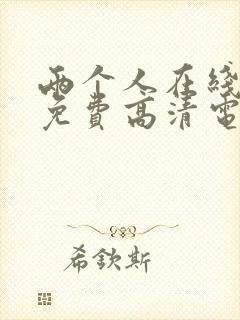 两个人在线
免费高清电
希欽斯